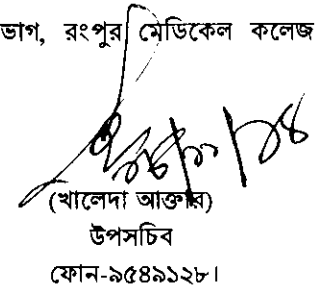 ভাগ, রংপুর মেডিকেল কলেজ
(খালেদা আক্তার)
উপসচিব
ফোন-৯৫৪৯১২৮।